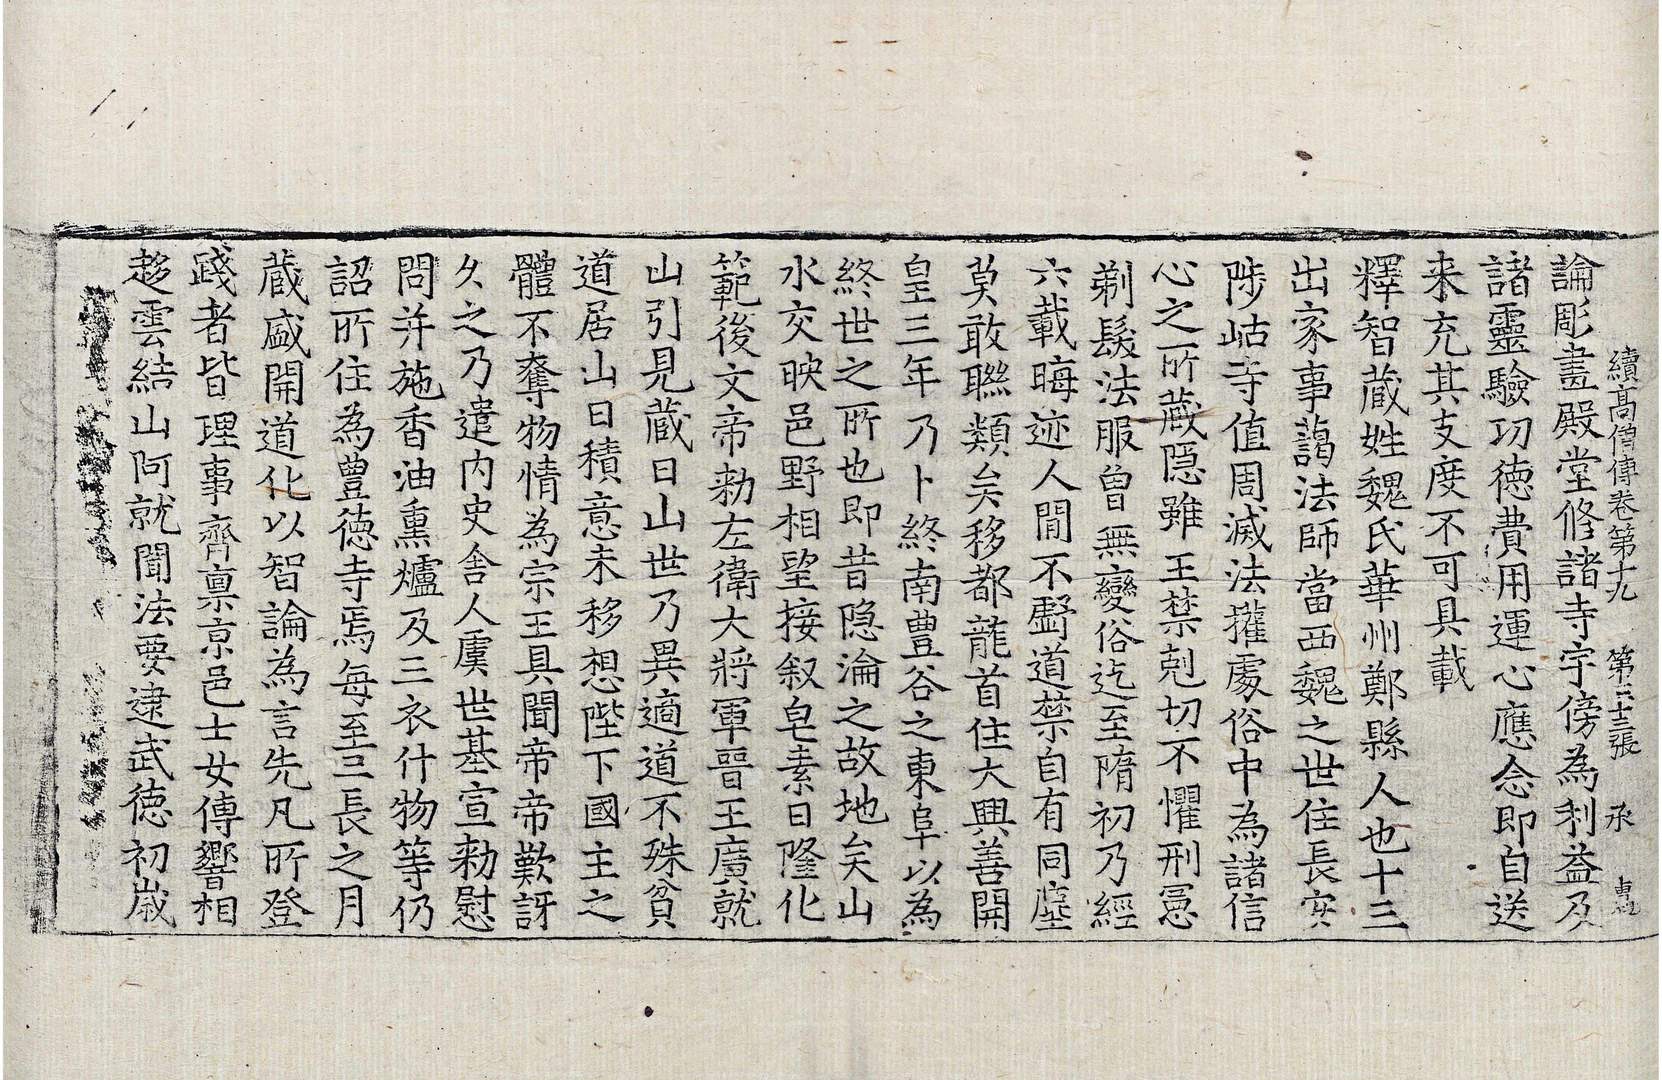 續高僧傳卷第十九 第二十三張 承
論彫畫殿堂修諸寺宇傍為利益及
諸靈驗功德費用運心應念即自送
来充其支度不可具載
釋智蔵姓魏氏華州鄭縣人也十三
出家事藹法師當西魏之世住長安
陟岵寺值周滅法攉處俗中為諸信
心之所蔵隠雖王禁剋切不懼刑憲
剃髮法服曾無變俗迄至隋初乃經
六載晦迹人間不虧道禁自有同塵
莫敢聮類矣移都龍首住大興善開
皇三年乃卜終南豊谷之東阜以為
終世之所也即昔隠淪之故地矣山
水交映邑野相望接叙皂素日隆化
範後文帝勑左衛大將軍晉王廣就
山引見蔵曰山世乃異適道不殊貧
道居山日積意未移想陛下國主之
體不奪物情為宗王具聞帝帝歎訝
久之乃遣内史舎人虞世基宣勑慰
問并施香油熏爐及三衣什物等仍
詔所住為豊徳寺焉每至三長之月
蔵盛開道化以智論為言先凡所登
踐者皆理事齊禀京邑士女傳響相
趍雲結山阿就聞法要逮武徳初歳